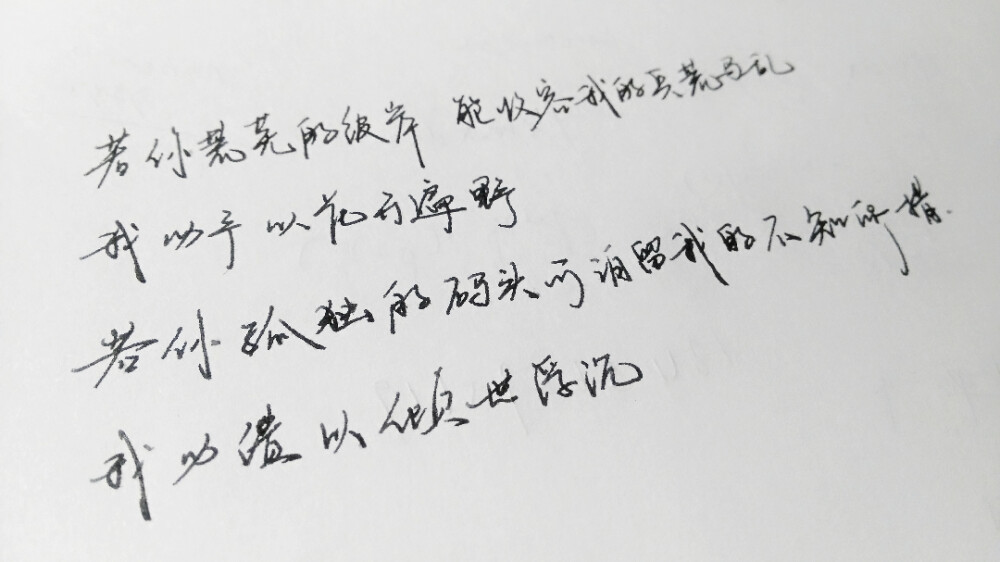 若你荒芜的彼岸 能收容我的兵荒马乱
我必予以花开遍野
若你孤独的码头可泊留我的不知所措
我必偿以倾世浮沉